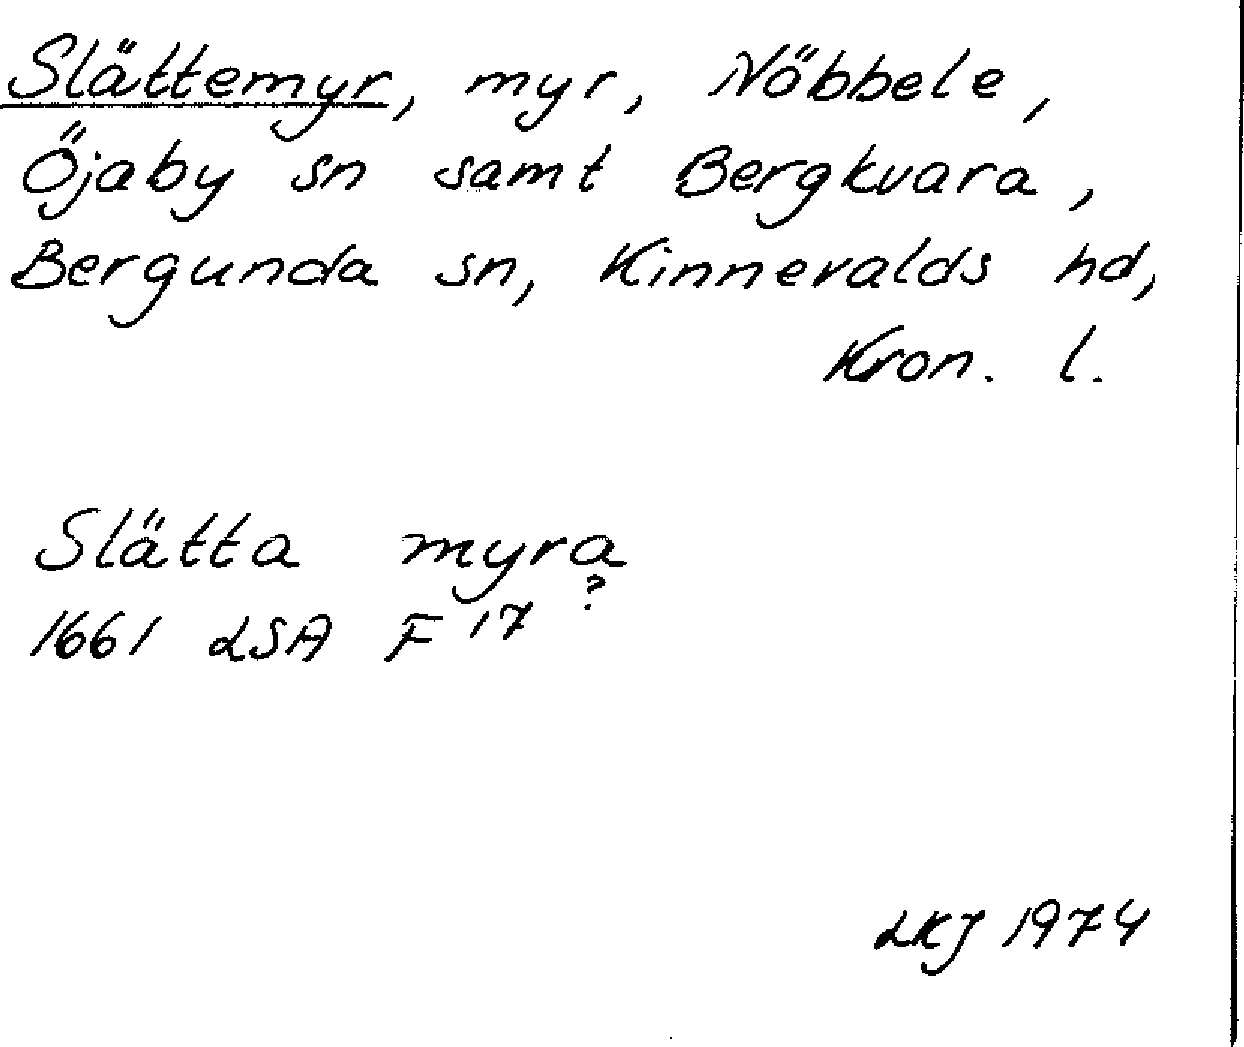 Slättemyr, myr, Nöbbele,
Öjaby sn samt Bergkvara,
Bergunda sn, Kinnevalds hd,
Kron. l.
Slätta myra
?
1661 LSA F 17
LKJ 1974